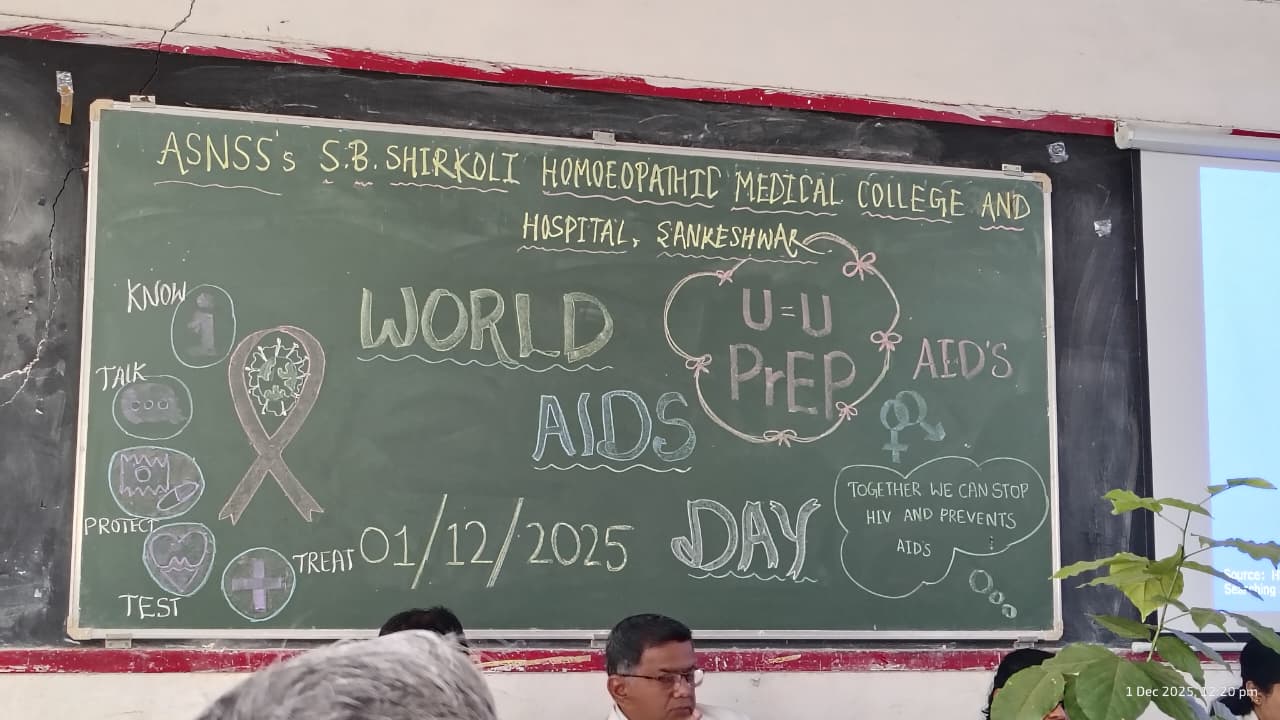 ASNSS's S.B. SHIRKOLI HOMOEOPATHIC MEDICAL COLLEGE AND
HOSPITAL, SANKESHWAR
KNOW
TALK
PROTECT
TEST
TREAT
WORLD
AIDS
DAY
01/12/2025
U=U
PrEP
AID'S
TOGETHER WE CAN STOP
HIV AND PREVENTS
AID'S
Source: H
Searching
1 Dec 2025, 12:20 pm